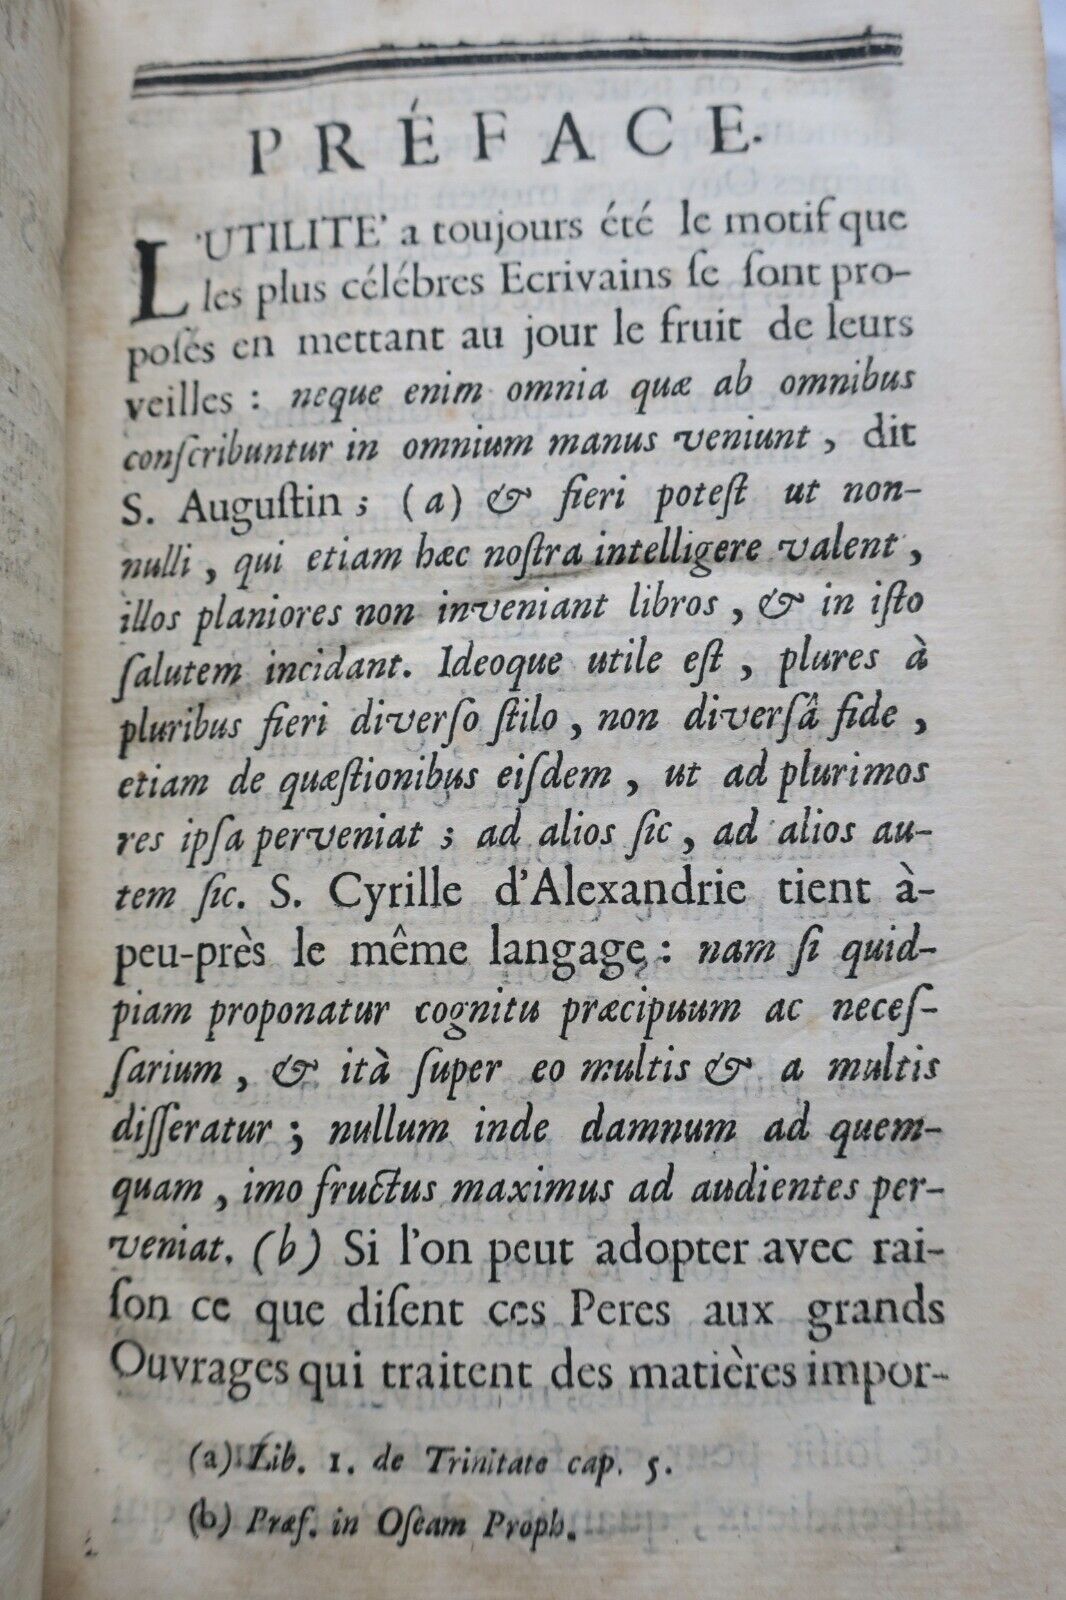 PRÉFACE.
L'UTILITE' a toujours été le motif que
les plus célébres Ecrivains ſe ſont pro-
poſés en mettant au jour le fruit de leurs
veilles : neque enim omnia quæ ab omnibus
conſcribuntur in omnium manus veniunt, dit
S. Auguſtin ; (a) & fieri poteſt ut non-
nulli, qui etiam hæc noſtra intelligere valent,
illos planiores non inveniant libros, & in iſto
ſalutem incidant. Ideoque utile eſt, plures à
pluribus fieri diverſo ſtilo, non diverſâ fide,
etiam de quæſtionibus eiſdem, ut ad plurimos
res ipſa perveniat ; ad alios ſic, ad alios au-
tem ſic. S. Cyrille d'Alexandrie tient à-
peu-près le même langage : nam ſi quid-
piam proponatur cognitu præcipuum ac neceſ-
ſarium, & ità ſuper eo multis & a multis
diſſeratur ; nullum inde damnum ad quem-
quam, imo fructus maximus ad audientes per-
veniat. (b) Si l'on peut adopter avec rai-
ſon ce que diſent ces Peres aux grands
Ouvrages qui traitent des matières impor-
(a) Lib. 1. de Trinitate cap. 5.
(b) Præf. in Oſeam Proph.